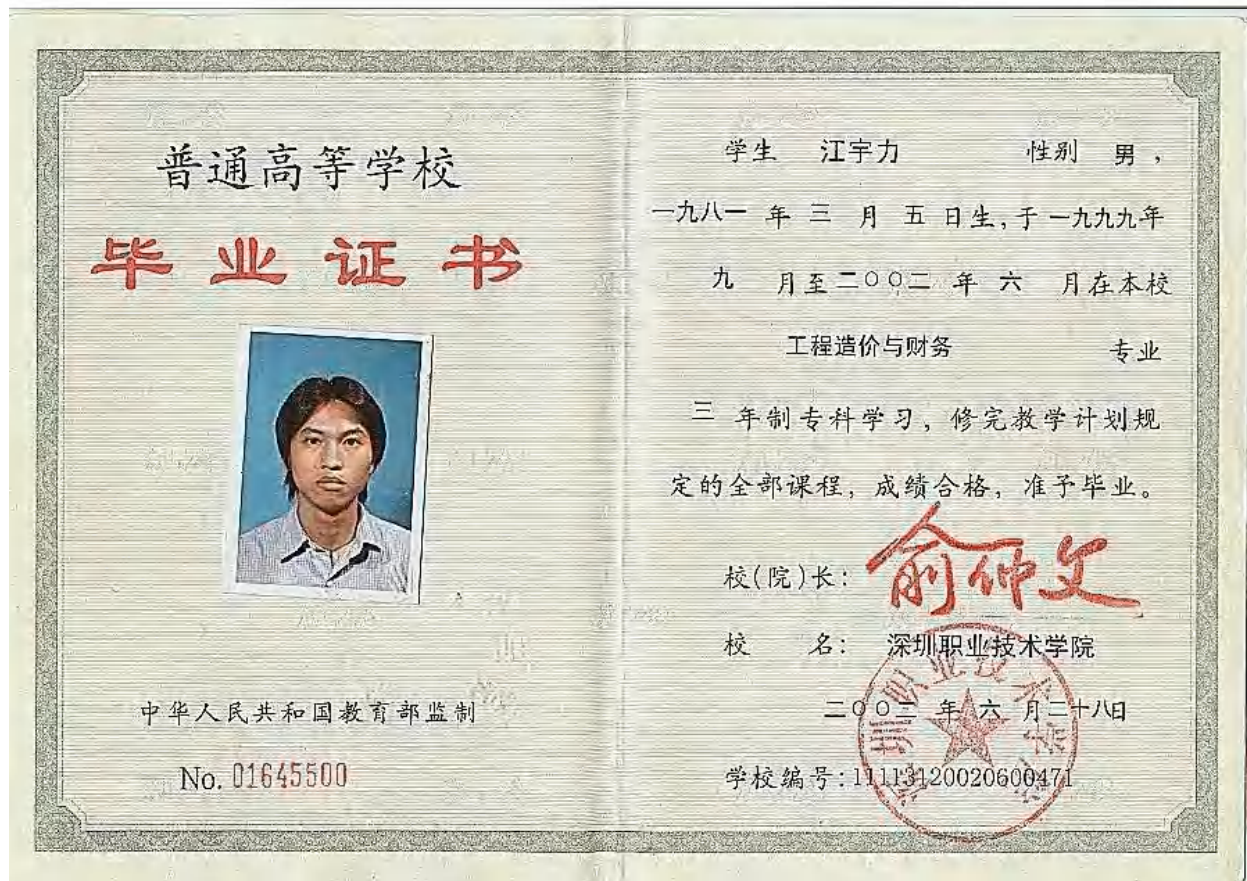 普通高等学校
毕业证书
中华人民共和国教育部监制
No. 01645500
学生 江宇力 性别 男，
一九八一 年 三 月 五 日生，于 一九九九年
九 月至 二〇〇二 年 六 月在本校
工程造价与财务 专业
三 年制专科学习，修完教学计划规
定的全部课程，成绩合格，准予毕业。
校(院)长： 俞仲文
校 名： 深圳职业技术学院
二〇〇二 年 六 月二十八日
学校编号：11113120020600471
深圳职业技术学院